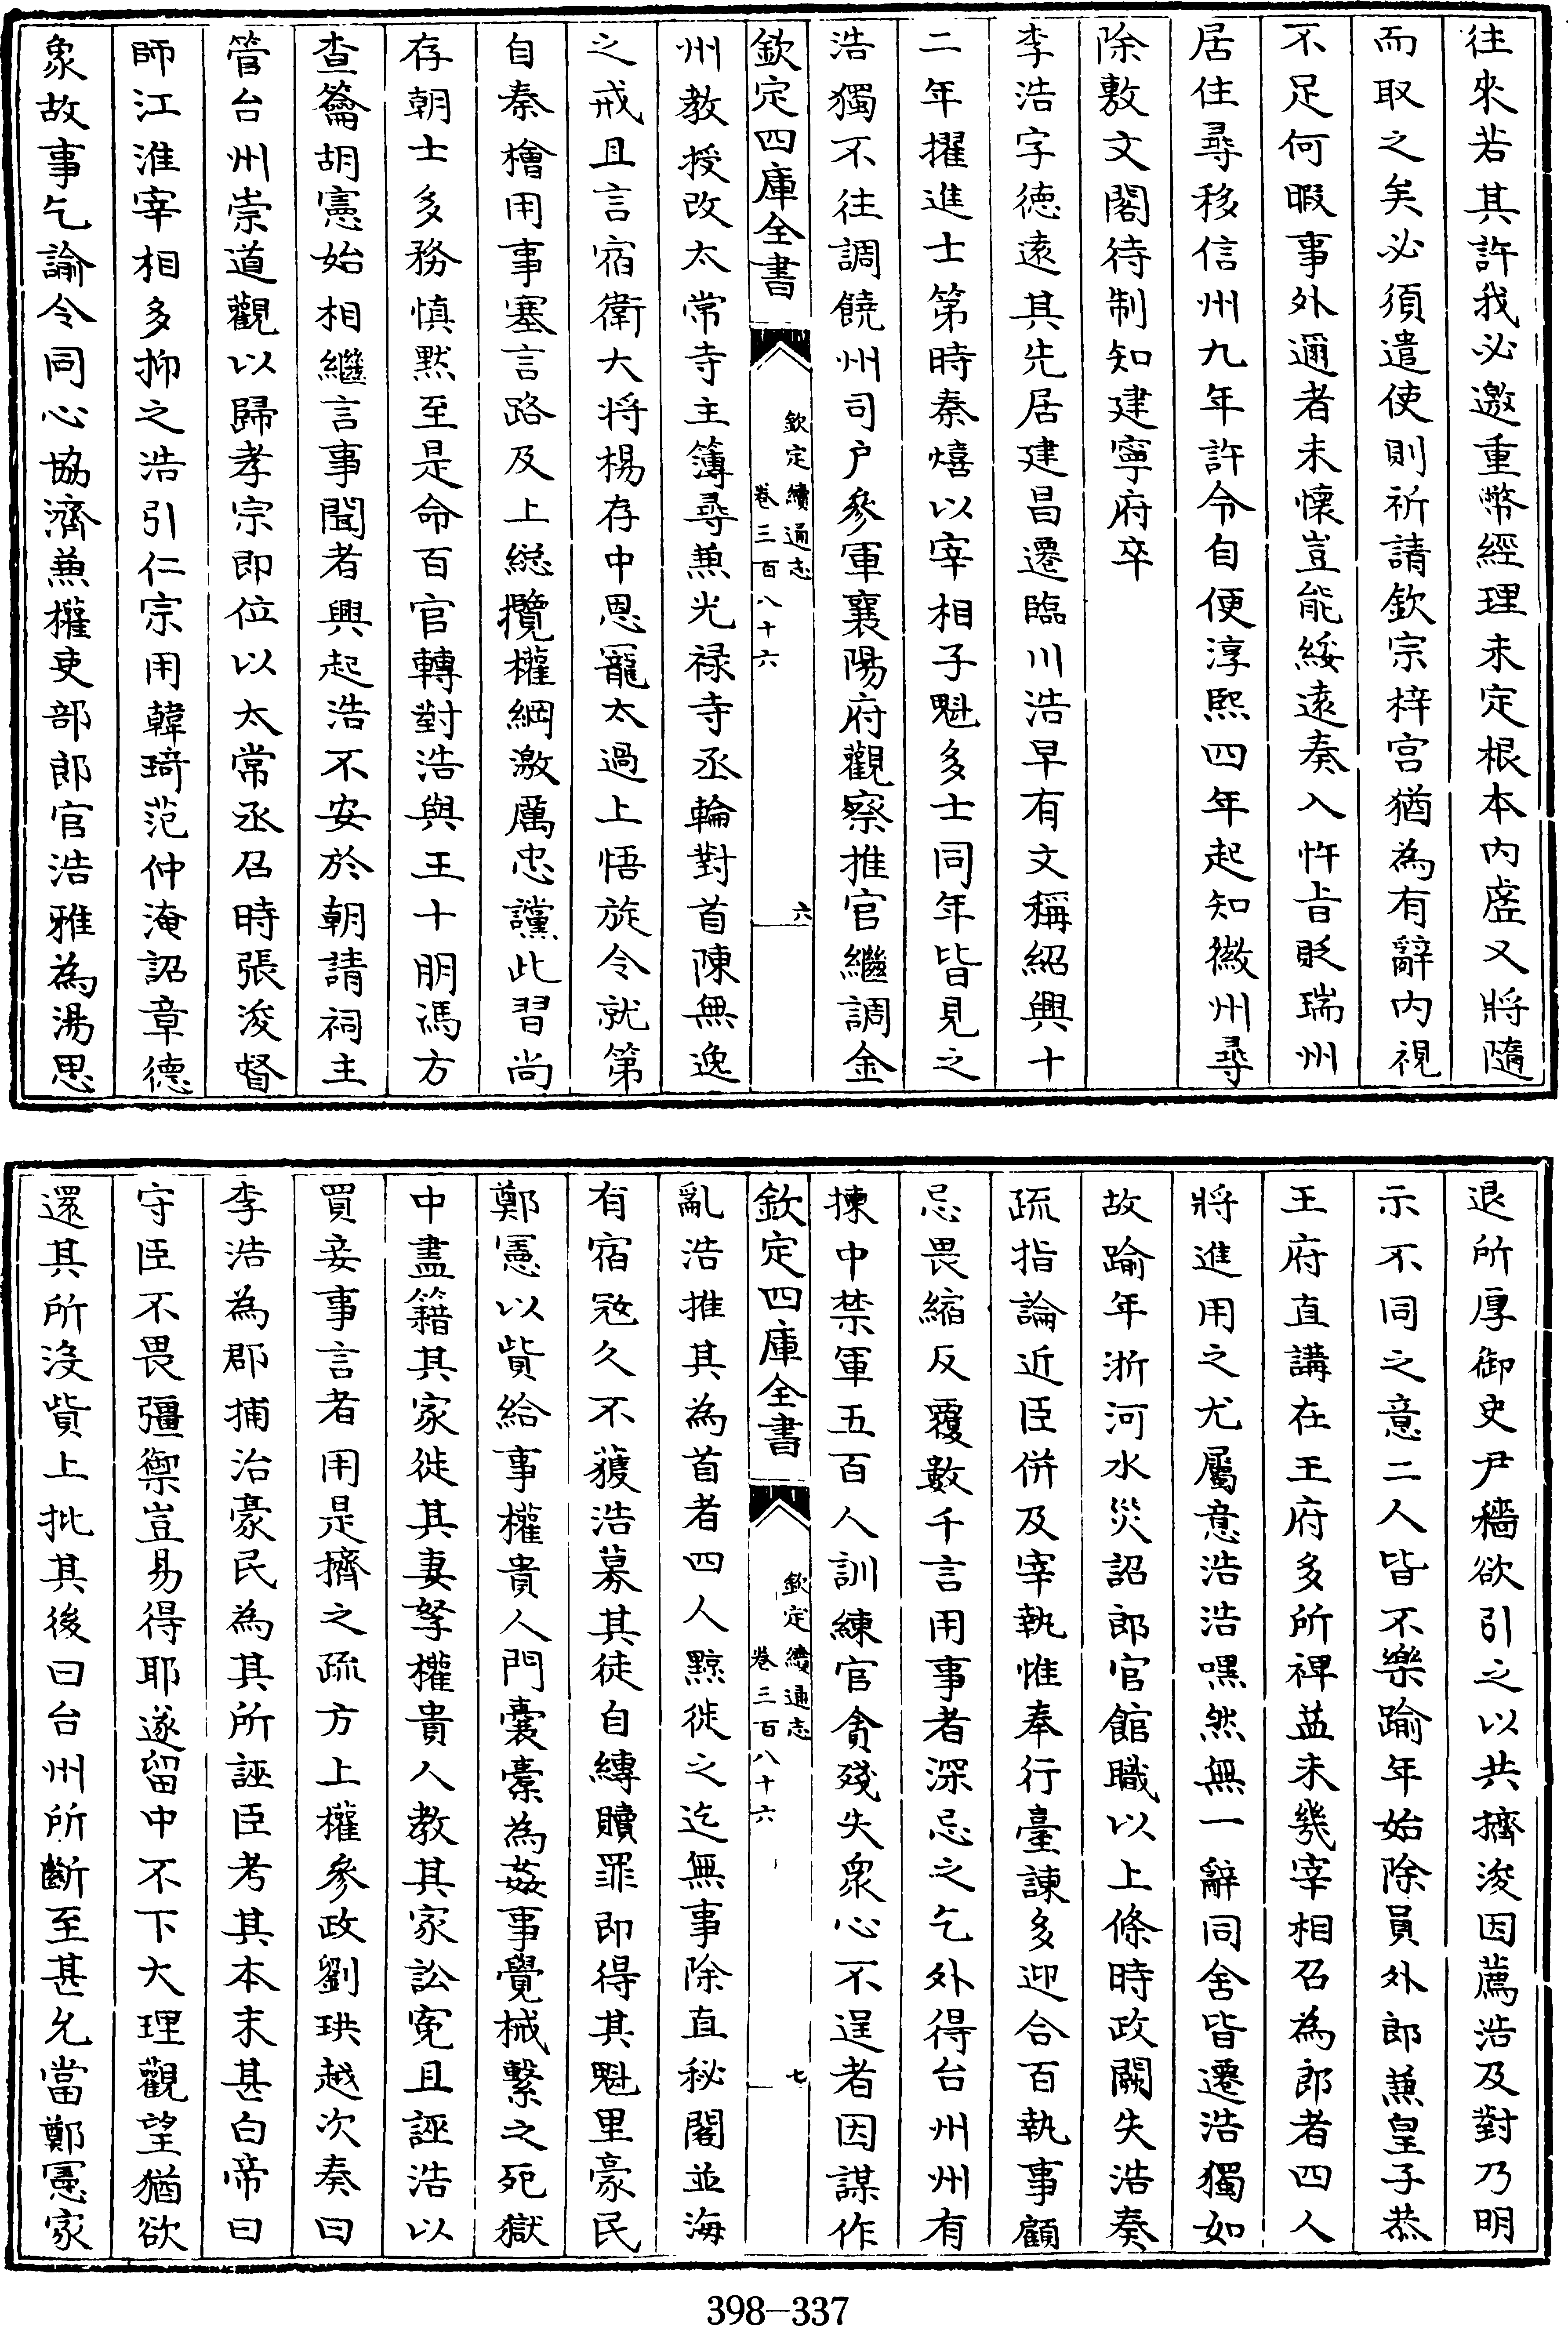 往來若其許我必邀重幣經理未定根本内虛又將隨
而取之矣必須遣使則祈請欽宗梓宫猶為有辭内視
不足何暇事外邇者未懷豈能綏遠奏入忤旨貶瑞州
居住尋移信州九年許令自便淳熙四年起知徽州尋
除敷文閣待制知建寧府卒
李浩字德遠其先居建昌遷臨川浩早有文稱紹興十
二年擢進士第時秦熺以宰相子魁多士同年皆見之
浩獨不往調饒州司户參軍襄陽府觀察推官繼調金
欽定四庫全書
欽定續通志
卷三百八十六
六
州教授改太常寺主簿尋兼光禄寺丞輪對首陳無逸
之戒且言宿衛大将楊存中恩寵太過上悟旋令就第
自秦檜用事塞言路及上縂攬權綱激厲忠讜此習尚
存朝士多務慎黙至是命百官轉對浩與王十朋馮方
查籥胡憲始相繼言事聞者興起浩不安於朝請祠主
管台州崇道觀以歸孝宗即位以太常丞召時張浚督
師江淮宰相多抑之浩引仁宗用韓琦范仲淹詔章德
象故事乞諭令同心協濟兼權吏部郎官浩雅為湯思
退所厚御史尹穡欲引之以共擠浚因薦浩及對乃明
示不同之意二人皆不樂踰年始除員外郎兼皇子恭
王府直講在王府多所禆益未幾宰相召為郎者四人
將進用之尤屬意浩浩嘿然無一辭同舍皆遷浩獨如
故踰年浙河水災詔郎官館職以上條時政闕失浩奏
疏指論近臣併及宰執惟奉行臺諫多迎合百執事顧
忌畏縮反覆數千言用事者深忌之乞外得台州州有
揀中禁軍五百人訓練官貪殘失衆心不逞者因謀作
欽定四庫全書
欽定續通志
卷三百八十六
七
亂浩推其為首者四人黥徙之迄無事除直秘閣並海
有宿𡨥久不獲浩募其徒自縳贖罪即得其魁里豪民
鄭憲以貲給事權貴人門囊槖為姦事覺械繫之死獄
中盡籍其家徙其妻孥權貴人教其家訟寃且誣浩以
買妾事言者用是擠之疏方上權參政劉珙越次奏曰
李浩為郡捕治豪民為其所誣臣考其本末甚白帝曰
守臣不畏彊禦豈易得耶遂留中不下大理觀望猶欲
還其所没貲上批其後曰台州所斷至甚允當鄭憲家
398-337